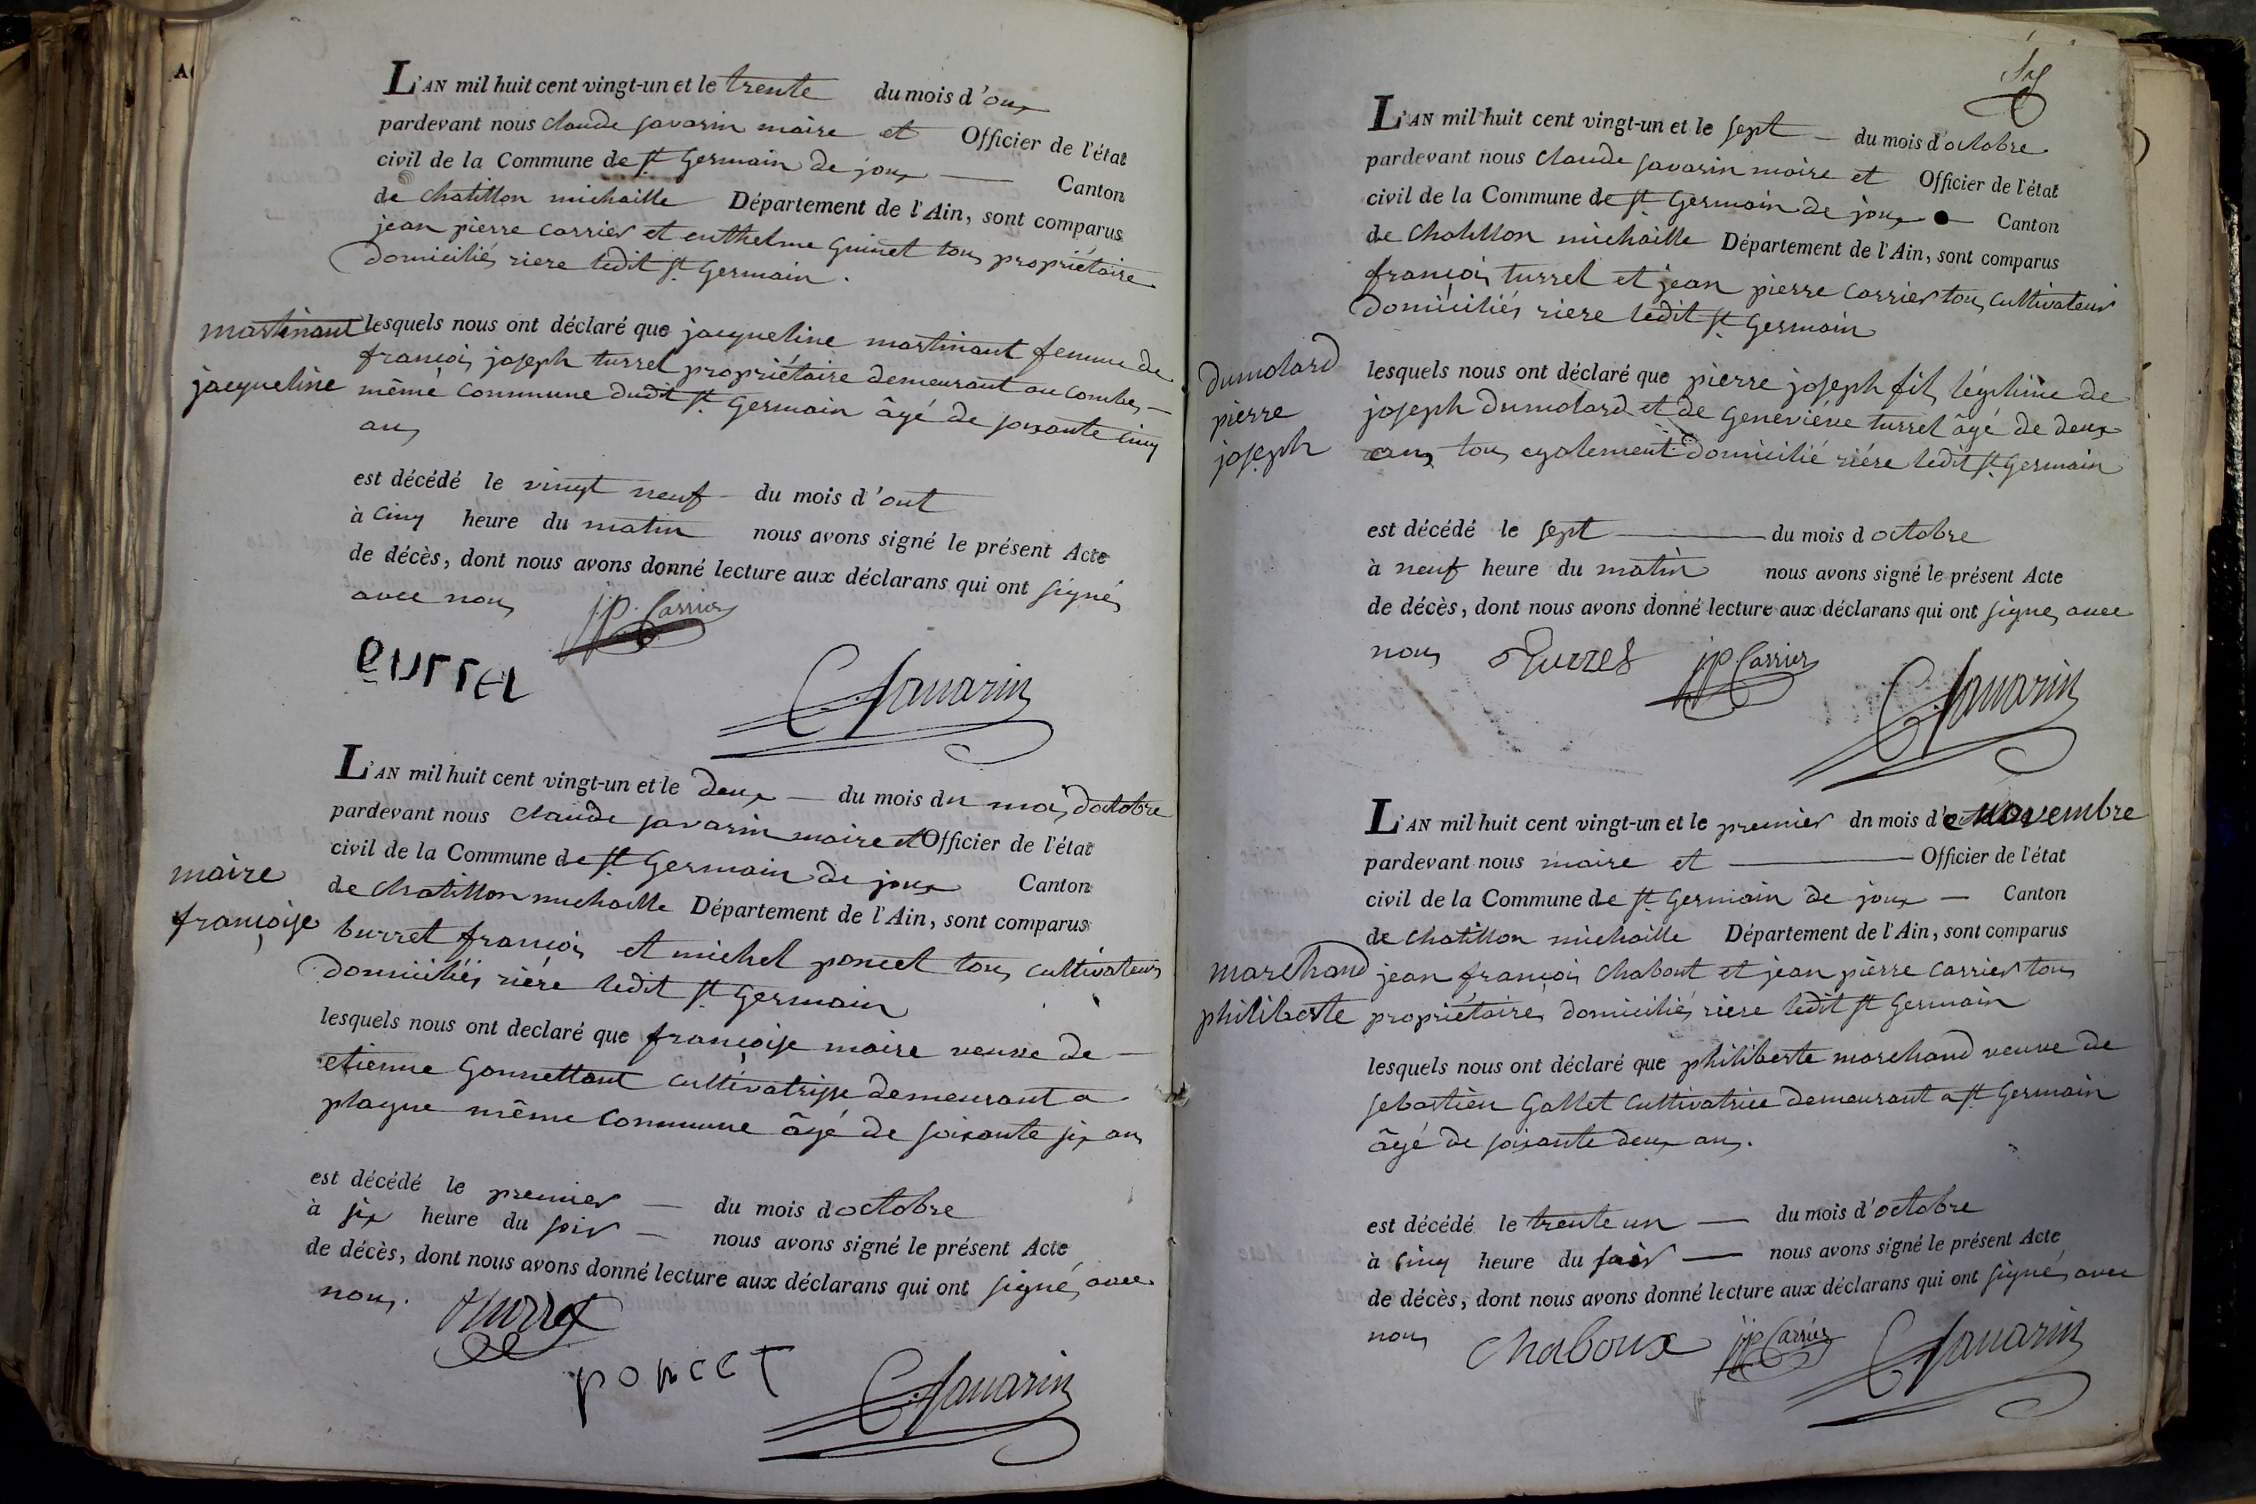 L'AN mil huit cent vingt-un et le trente du mois d'oux
pardevant nous claude savarin maire et Officier de l'état
civil de la Commune de St Germain de joux — Canton
de chatillon michaille Département de l'Ain, sont comparus
jean pierre carrier et enthelme guinet tous propriétaire
domiciliés riere ledit St Germain.
martinant
jacqueline
lesquels nous ont déclaré que jacqueline martinant femme de
françois joseph turrel propriétaire demeurant au combes —
même commune dudit St Germain âgé de soixante cinq
ans
est décédé le vingt neuf — du mois d'out
à cinq heure du matin nous avons signé le présent Acte
de décès, dont nous avons donné lecture aux déclarans qui ont signés
avec nous
j.p. Carrier
C Savarin
L'AN mil huit cent vingt-un et le deux — du mois du mois doctobre
pardevant nous claude savarin maire et Officier de l'état
civil de la Commune de St Germain de joux Canton
de chatillon michaille Département de l'Ain, sont comparus
maire
françoise
burret françois et michel poncet tous cultivateurs
domiciliés riére ledit St Germain
lesquels nous ont declaré que françoise maire veuve de —
etienne Gonnettant cultivatrisse demeurant a
plague même commune âgé de soixante six ans
est décédé le premier — du mois doctobre
à six heure du soir — nous avons signé le présent Acte
de décès, dont nous avons donné lecture aux déclarans qui ont signés avec
nous.
poncet
C Savarin
L'AN mil huit cent vingt-un et le sept — du mois d'octobre
pardevant nous claude savarin maire et Officier de l'état
civil de la Commune de St Germain de joux — Canton
de chatillon michaille Département de l'Ain, sont comparus
françois turrel et jean pierre carrier tous cultivateurs
domiciliés riere ledit St Germain
dumolard
pierre
joseph
lesquels nous ont déclaré que pierre joseph fils légitime de
joseph dumolard et de geneviéve turrel âgé de deux
ans tous egalement domicilié riére ledit St Germain
est décédé le sept — du mois d octobre
à neuf heure du matin nous avons signé le présent Acte
de décès, dont nous avons donné lecture aux déclarans qui ont signes avec
nous
jp Carrier
C Savarin
L'AN mil huit cent vingt-un et le premier du mois d' Novembre
pardevant nous maire et — Officier de l'état
civil de la Commune de St Germain de joux — Canton
de chatillon michaille Département de l'Ain, sont comparus
marchand
philiberte
jean françois chabout et jean pierre carrier tous
propriétaires domiciliés riere ledit St Germain
lesquels nous ont déclaré que philiberte marchand veuve de
sebastien Gallet cultivatrice demeurant a St Germain
âgé de soixante deux ans.
est décédé le trente un — du mois d'octobre
à cinq heure du soir — nous avons signé le présent Acte
de décès, dont nous avons donné lecture aux déclarans qui ont signés avec
nous
Chaboux
jp Carrier
C Savarin